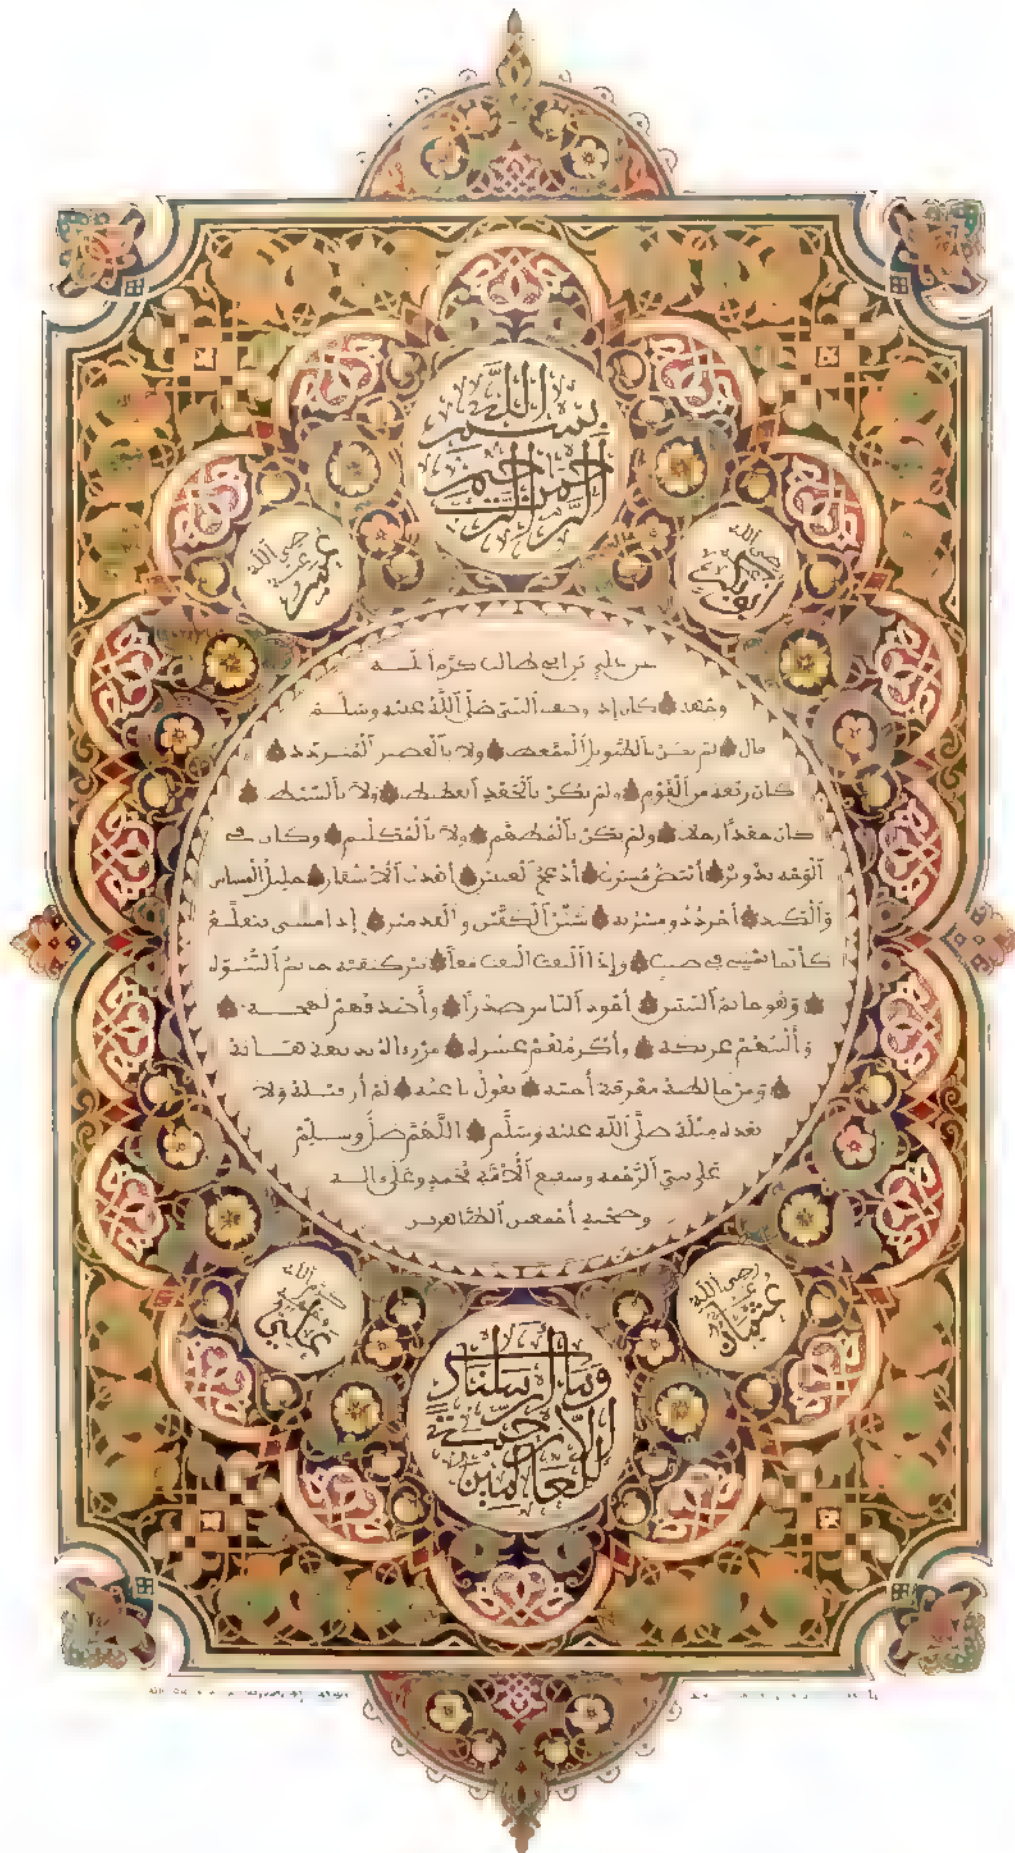 بسم الله
الرحمن الرحيم
أبو بكر
رضي الله
عمر
رضي الله
عنه
عن علي بن أبي طالب كرم الله
وجهه كان إذا وصف النبي صلى الله عليه وسلم
قال لم يكن بالطويل الممغط ولا بالقصير المتردد
كان ربعة من القوم ولم يكن بالجعد القطط ولا بالسبط
كان جعدا رجلا ولم يكن بالمطهم ولا بالمكلثم وكان في
الوجه تدوير أبيض مشرب أدعج العينين أهدب الأشفار جليل المشاش
والكتد أجرد ذو مسربة شثن الكفين والقدمين إذا مشى يتقلع
كأنما يمشي في صبب وإذا التفت التفت معا بين كتفيه خاتم النبوة
وهو خاتم النبيين أجود الناس صدرا وأصدقهم لهجة
وألينهم عريكة وأكرمهم عشرة من رءاه بديهة هابه
ومن خالطه معرفة أحبه يقول ناعته لم أر قبله ولا
بعده مثله صلى الله عليه وسلم اللهم صل وسلم
على نبي الرحمة وشفيع الأمة محمد وعلى اله
وصحبه أجمعين الطاهرين
عثمان
رضي الله
عنه
علي
كرم الله
وجهه
وما أرسلناك
إلا رحمة
للعالمين